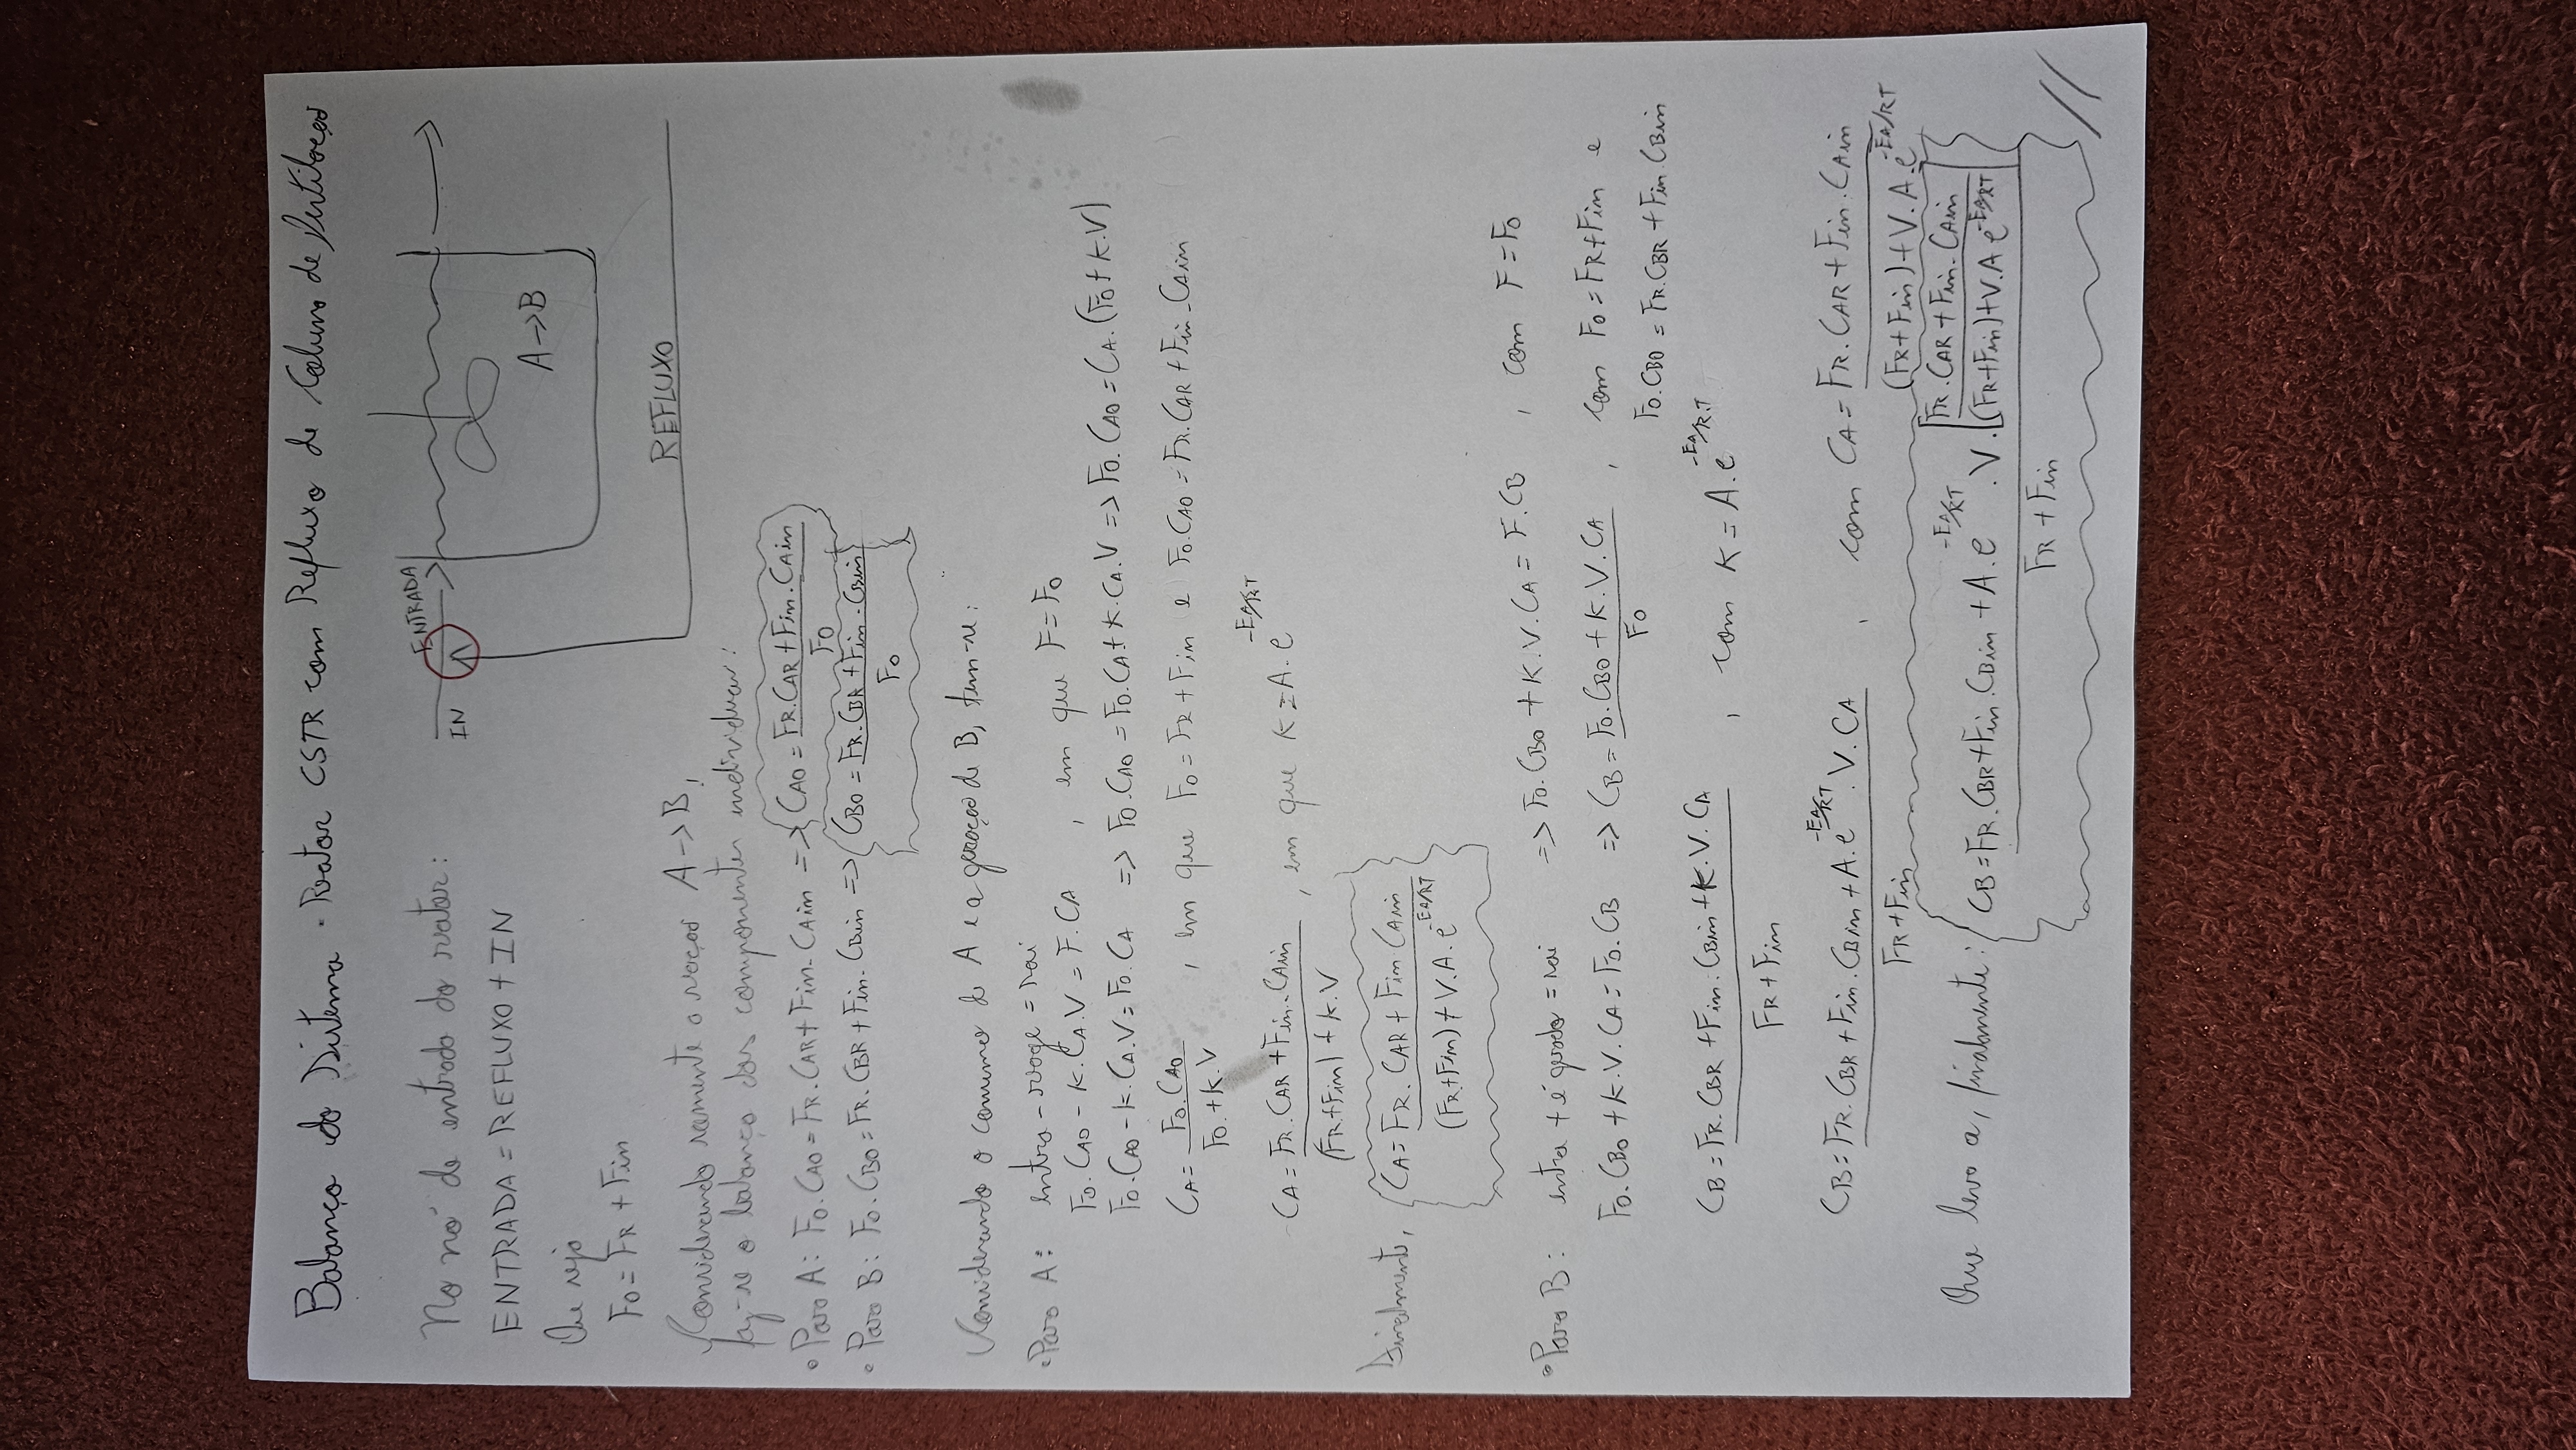 Balanço do Sistema - Reator CSTR com Refluxo de Coluna de Destilação
No nó de entrada do reator:
ENTRADA = REFLUXO + IN
Ou seja
F0 = FR + Fin
IN
ENTRADA
A -> B
REFLUXO
Considerando somente a reação A -> B,
faz-se o balanço dos componentes individuais:
• Para A: F0.CA0 = FR.CAR + Fin.CAin => CA0 = FR.CAR + Fin.CAin / F0
• Para B: F0.CB0 = FR.CBR + Fin.CBin => CB0 = FR.CBA + Fin.CBin / F0
Considerando o consumo de A e a geração de B, tem-se:
• Para A: entra - reage = sai
F0.CA0 - K.CA.V = F.CA , em que F = F0
F0.CA0 - K.CA.V = F0.CA => F0.CA0 = F0.CA + K.CA.V => F0.CA0 = CA.(F0 + K.V)
CA = F0.CA0 / F0.+K.V , em que F0 = FR + Fin e F0.CA0 = FR.CAR + Fin.CAin
CA = FR.CAR + Fin.CAin / (FR+Fin) + K.V , em que K = A.e^-EA/RT
Finalmente, CA = FR.CAR + Fin.CAin / (FR+Fin) + V.A.e^-EA/RT
• Para B: entra + é gerado = sai => F0.CB0 + K.V.CA = F.CB , com F = F0
F0.CB0 + K.V.CA = F0.CB => CB = F0.CB0 + K.V.CA / F0 , com F0 = FR+Fin e
F0.CB0 = FR.CBR + Fin.CBin
CB = FR.CBR + Fin.CBin + K.V.CA / FR + Fin , com K = A.e^-EA/R.T
CB = FR.CBR + Fin.CBin + A.e^-EA/RT.V.CA / FR + Fin , com CA = FR.CAR + Fin.CAin / (FR+Fin) + V.A.e^-EA/RT
Que leva a, finalmente: CB = FR.CBR + Fin.CBin + A.e^-EA/RT.V.[FR.CAR + Fin.CAin / (FR+Fin) + V.A e^-EA/RT] / FR + Fin //